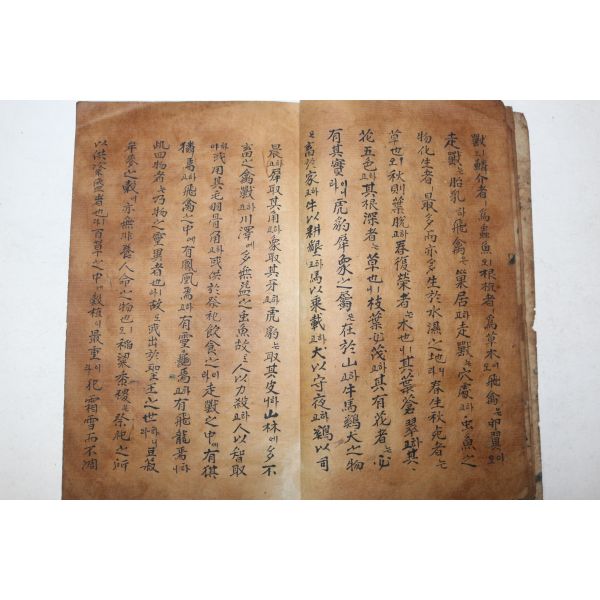 獸이오鱗介者ㅣ爲蟲魚오根植者ㅣ爲草木이라飛禽은卵翼이오
走獸는胎乳하飛禽은巢居하고走獸는穴處하고虫魚之
物化生者最多而亦多生於水濕之地라春生秋死者는
草也오秋則葉脫하고春復榮者는木也라其葉蒼翠하고其
花五色하고其根深者는草也에枝葉必茂하고其有花者는必
有其實이라虎豹犀象之屬은在於山하고牛馬鷄犬之物
은畜於家하고牛以耕墾하고馬以乘載하고犬以守夜하고鷄以司
晨하고犀取其角하고象取其牙하고虎豹는取其皮니라山林에多不
畜之禽獸하고川澤에多無益之虫魚故로人以力殺하고人以智取
하야或用其毛羽骨角하고或供於祭祀飮食之이라走獸之中에有猉
獜焉하고飛禽之中에有鳳凰焉하고有靈龜焉하고有飛龍焉하니
此四物者는乃物之靈異者也라故로或出於聖王之世하니豆菽
牟麥之穀이亦無非養人命之物也오稻粱黍稷은祭祀之所
以供粢盛者也라百草之中에穀植이最重이라犯霜雪而不凋